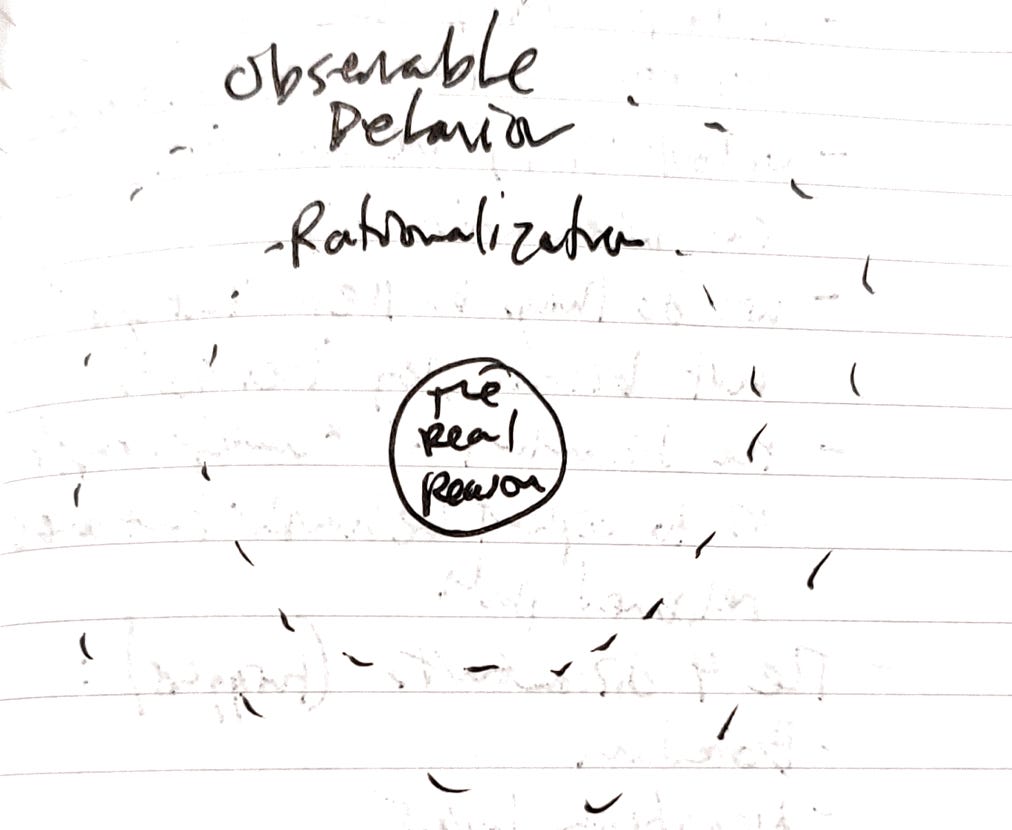 Observable
Behavior
Rationalization
The
Real
Reason